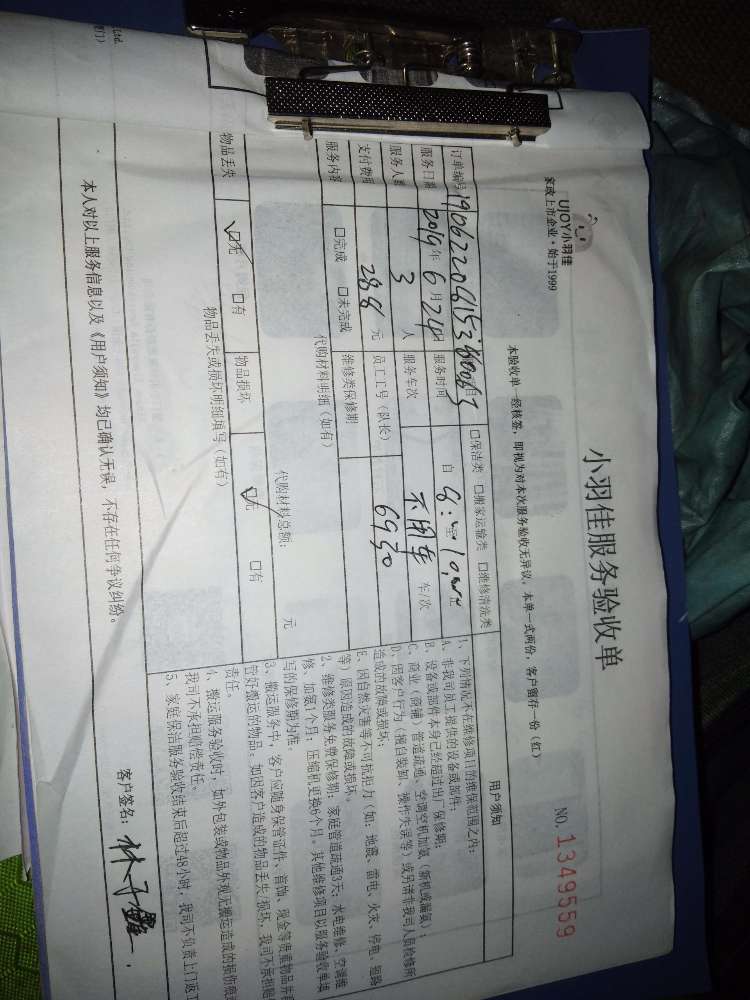 UJOY小羽佳
家政上市企业·始于1999
小羽佳服务验收单
NO. 1349559
本验收单一经核签，即视为对本次服务验收无异议，本单一式两份，客户留存一份（红）
订单编号
□保洁类 □搬家运输类 □维修清洗类
用户须知
服务日期 2019年6月24日 服务时间 自 8:00至10:00止
服务人数 3 人 服务车次 不用车 车/次
支付费用 288 元 员工工号（队长） 6930
服务内容 □完成 □未完成 维修类保修期
代购材料明细（如有）
代购材料总额： 元
物品丢失 ☑无 □有 物品损坏 ☑无 □有
物品丢失或损坏明细填写（如有）
1、下列情况不在维修项目的维保范围之内：
A、非我司员工提供的设备或部件；
B、设备或部件本身已经超过出厂保修期；
C、商业（商铺）管道疏通、空调空机加氨（新机或漏氨）；
D、因客户行为（擅自装卸、操作失误等）或另请非我司人员检修所
造成的故障或损坏；
E、因自然灾害等不可抗拒力（如：地震、雷电、火灾、停电、短路
等）原因造成的故障或损坏。
2、维修类服务免费保修期：家庭管道疏通3天；水电维修、空调维
修、加氨1个月；压缩机更换6个月。其他维修项目以服务验收单填
写的保修期为准。
3、搬运服务中，客户应随身保管证件、首饰、现金等贵重物品并自
管好搬运的物品；如因客户造成的物品丢失/损坏，我司不承担赔
责任。
4、搬运服务验收时，如外包装或物品外观无搬运造成的损伤痕
我司不承担赔偿责任。
5、家庭保洁服务验收结束后超过48小时，我司不负责上门返工
本人对以上服务信息以及《用户须知》均已确认无误，不存在任何争议纠纷。
客户签名：林
Ltd.